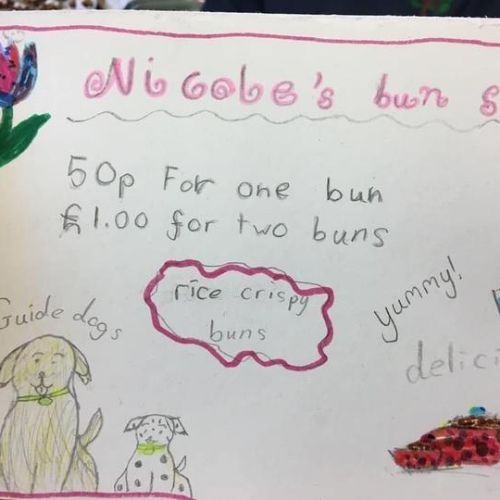 Nicole's bun s
50p For one bun
£1.00 for two buns
Guide dogs
rice crispy
buns
yummy!
delici